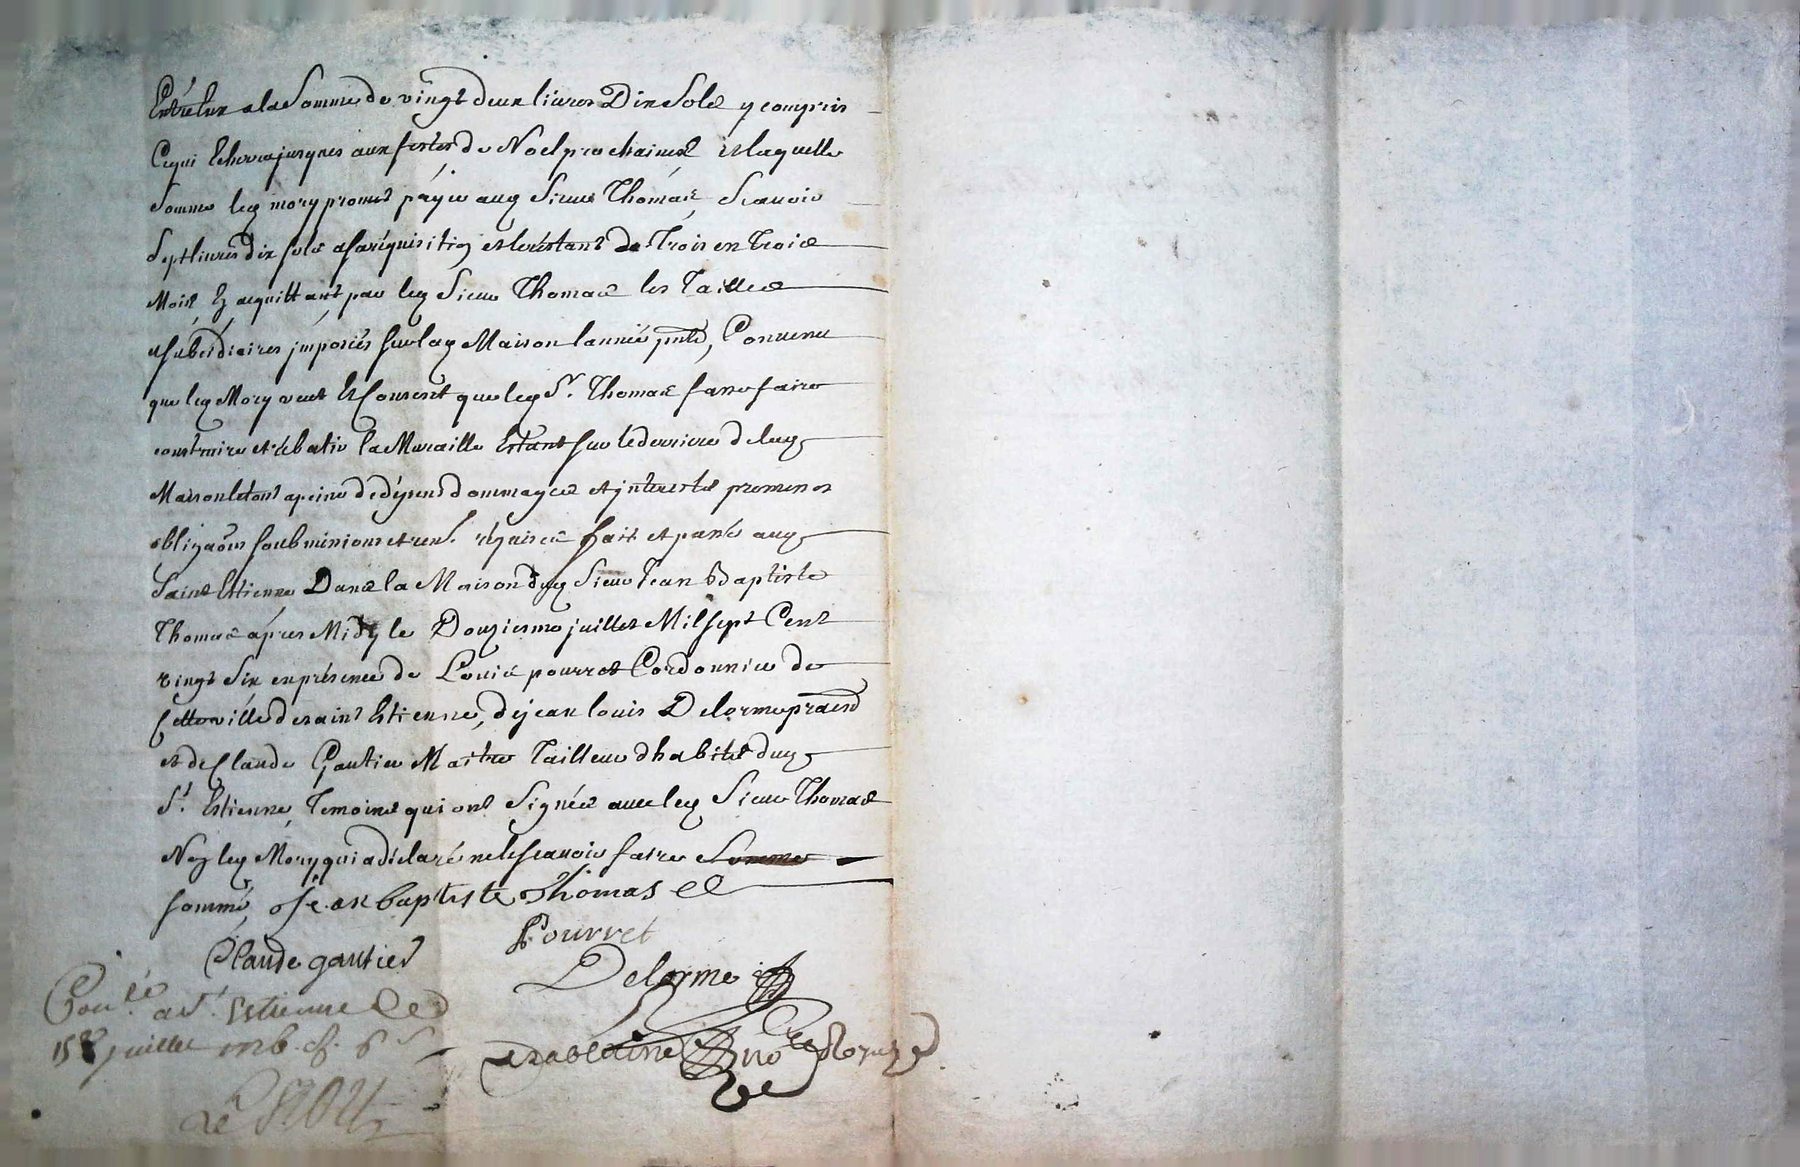 Entreeux ala Somme de vingt deux livres Dix Sols y compris
Cequi Echerra jusques aux festes de Noel prochaines Et laquelle
Somme led mory promet payer aud Sieur Thomas, Scavoir
Sept livres dix sols asa requisition et le restant de Trois en Trois
Mois, En acquittant par led Sieur Thomas les Tailles
subsidiaires jmposées sur lad Maison lannée pnte, Convenu
que led Mory veut Et Consent que led Sr. Thomas fasse faire
construire et rebatir la Muraille Estant sur le derriere de lad
Maison apeine de depens dommages et jnterests promesses
obligaõns soubmissions et ren. requises fait et passé aud
Saint Estienne Dans la Maison dud Sieur Jean Baptiste
Thomas apres Midy le Douziesme juillet Mil sept Cent
vingt Six en présence de Louis pourret Cordonnier de
Cette ville de saint Estienne, de jean louis Delorme praẽn
et de Claude Gautier Maitre Tailleur dhabits dud
St. Estienne, Temoins qui ont Signés avec led Sieur Thomas
Non led Mory qui a déclaré ne le scavoir faire
sommé, Jean baptiste Thomas
Pourret
Claude gautier
Delorme
Con.lé a St. Estienne le
15e juillet 1726